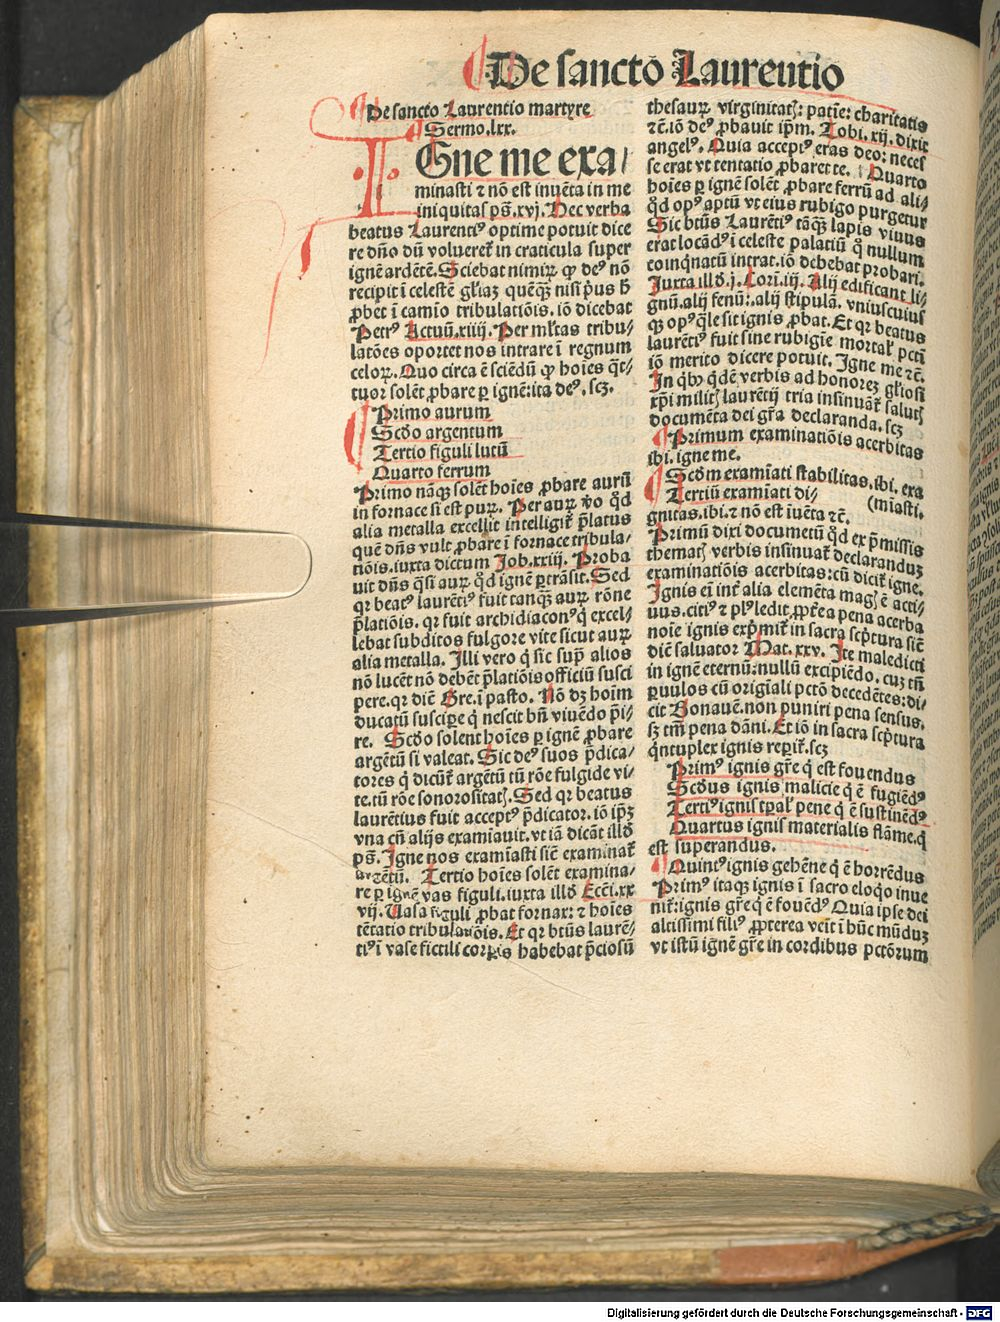 De sancto Laurentio
De sancto Laurentio martyre
Sermo.lxx.
IGne me exa/
minasti ⁊ nō est inuēta in me
iniquitas ps̄.xvj. Hec verba
beatus Laurentiꝰ optime potuit dice
re dn̄o dū volueret̄ in craticula super
ignē ardētē. Sciebat nimiꝝ ꝙ deꝰ nō
recipit ī celestē gl̄iaꝫ quēqꝫ nisi pͥus h̄
ꝓbet ī camīo tribulatiōis. iō dicebat
Petrꝰ Actuū.xiiij. Per ml̄tas tribu/
latōes oportet nos intrare ī regnum
celoꝝ. Quo circa ē sciēdū ꝙ hoīes q̄t/
tuor solēt ꝓbare ꝑ ignē: ita deꝰ. scꝫ.
Primo aurum
Scd̄o argentum
Tertio figuli lutū
Quarto ferrum
Primo nāqꝫ solēt hoīes ꝓbare aurū
in fornace si est puꝝ. Per auꝝ v̄o qd̄
alia metalla excellit intelligit̄ p̄latus
quē dn̄s vult ꝓbare ī fornace tribula/
tiōis. iuxta dictum Job.xxiij. Proba
uit dn̄s q̄si auꝝ qd̄ ignē ꝑtrāsit. Sed
qꝛ beatꝰ laurētiꝰ fuit tanqꝫ auꝝ rōne
p̄latiōis. qꝛ fuit archidiaconꝰ q̇ excel/
lebat subditos fulgore vite sicut auꝝ
alia metalla. Illi vero q̇ sic supͣ alios
nō lucēt nō debēt p̄latiōis officiū susci
pere. qꝛ diē Gre. ī pasto. Nō dꝫ hoīm
ducatū suscipe q̇ nescit bn̄ viuēdo p̄i/
re. Scd̄o solent hoīes ꝑ ignē ꝓbare
argētū si valeat. Sic deꝰ suos p̄dica/
tores q̇ dicūt̄ argētū tū rōe fulgide vi/
te. tū rōe sonorositatꝭ. Sed qꝛ beatus
laurētius fuit acceptꝰ p̄dicator. iō ip̄ꝫ
vna cū alijs examīauit. vt iā dicāt illd̄
ps̄. Igne nos examīasti sic̄ examinat̄
argētū. Tertio hoīes solēt examina/
re ꝑ ignē vas figuli. iuxta illd̄ Ecci.xx
vij. Uasa figuli ꝓbat fornax: ⁊ hoīes
tētatio tribulatiōis. Et qꝛ btūs laurē/
tiꝰ ī vase fictili corpis habebat p̄ciosū
thesauꝝ virginitatꝭ: patiē: charitatis
⁊c̄. iō deꝰ ꝓbauit ip̄m. Tobi.xij. dixit
angelꝰ. Quia acceptꝰ eras deo: neces
se erat vt tentatio ꝓbaret te. Quarto
hoīes ꝑ ignē solēt ꝓbare ferrū ad ali/
qd̄ opꝰ aptū vt eius rubigo purgetur
Sic btūs Laurētiꝰ tāqꝫ lapis viuus
erat locādꝰ ī celeste palatiū q̊ nullum
coinq̇natū intrat. iō debebat probari.
Juxta illd̄.j. Cori.iij. Alij edificant li/
gnū. alij fenū:. alij stipulā. vniuscuius
qꝫ opꝰ q̄le sit ignis ꝓbat. Et qꝛ beatus
laurētiꝰ fuit sine rubigīe mortalꝭ pctī
iō merito dicere potuit. Igne me ⁊c̄.
In qͥbꝰ qͥdē verbis ad honorē gl̄iosi
xp̄i militꝭ laurētij tria insinuāt̄ salutꝭ
documēta dei gr̄a declaranda. scꝫ
Primum examinatiōis acerbitas
ibi. igne me.
Scd̄m examīati stabilitas. ibi. exa
Tertiū examīati di/ (miasti.
gnitas. ibi. ⁊ nō est iuēta ⁊c̄.
Primū dixi documētū qd̄ ex p̄missis
thematꝭ verbis insinuat̄ declaranduꝫ
examinatiōis acerbitas: cū dicit̄ igne.
Ignis eī int̄ alia elemēta magꝭ ē acti/
uus. citiꝰ ⁊ plꝰ ledit. ꝓpt̄ea pena acerba
noīe ignis exp̄mit̄ in sacra sc̄ptura sic̄
diē saluator Mat.xxv. Ite maledicti
in ignē eternū: nullū excipiēdo. cuꝫ tn̄
ꝑuulos cū origīali pctō decedētes: di/
cit Bonauē. non puniri pena sensus.
sꝫ tm̄ pena dāni. Et iō in sacra sc̄ptura
q̇ntuplex ignis repit̄. scꝫ
Primꝰ ignis gr̄e q̇ est fouendus
Scd̄us ignis malicie q̇ ē fugiēdꝰ
Tertiꝰ ignis tpalꝭ pene q̇ ē sustinēdꝰ
Quartus ignis materialis flāme. q̇
est superandus.
Quintꝰ ignis gehēne q̇ ē horrēdus
Primꝰ itaqꝫ ignis ī sacro eloq̊o inue
nit̄: ignis gr̄e q̇ ē fouēdꝰ Quia ipse dei
altissimi filiꝰ ꝓpterea veīt ī hūc mūduꝫ
vt istū ignē gr̄e in cordibus pctōrum
Digitalisierung gefördert durch die Deutsche Forschungsgemeinschaft - DFG